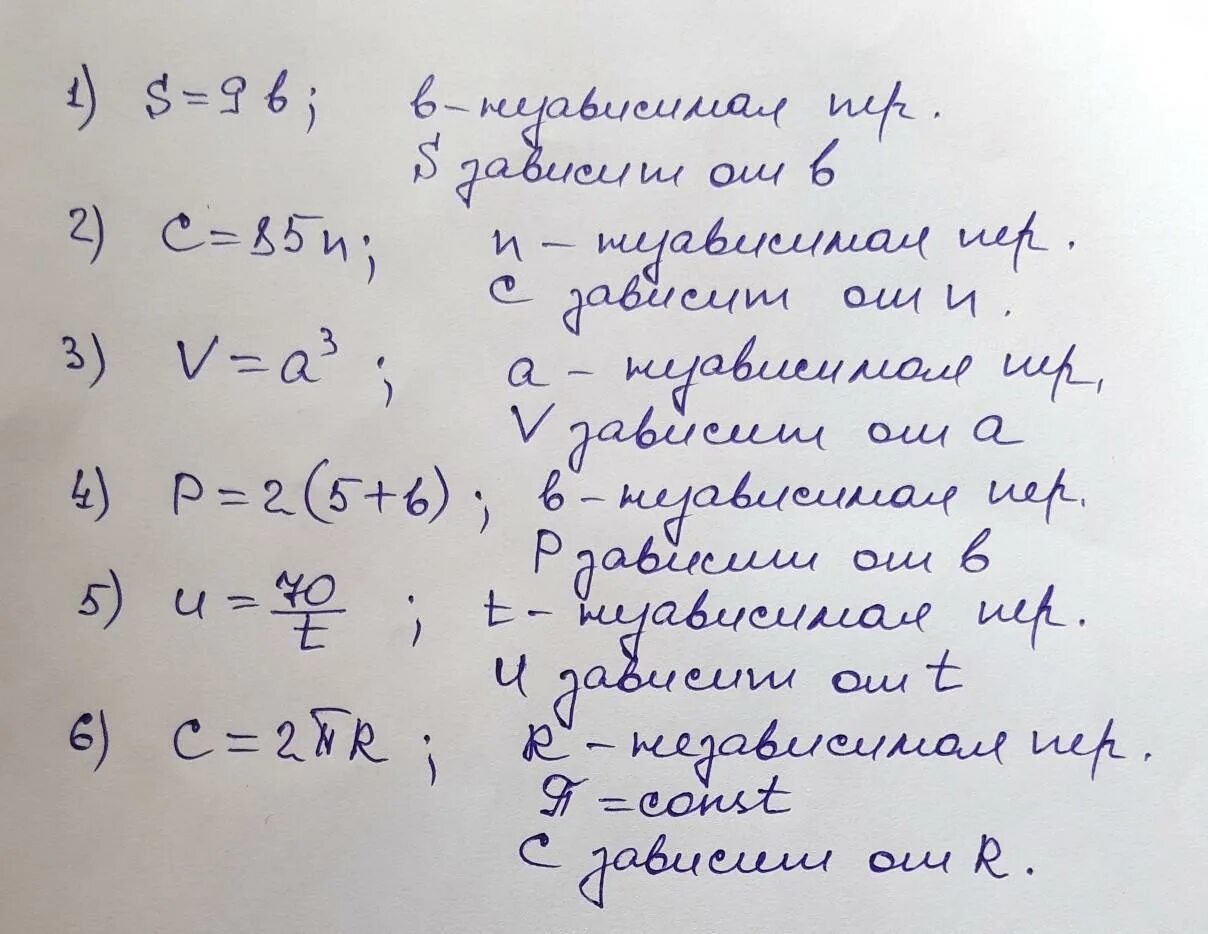 1) S = 9 b; b - независимая пер.
S зависит от b
2) C = 85 n; n - независимая пер.
C зависит от n.
3) V = a³; a - независимая пер,
V зависит от a
4) P = 2(5+b); b - независимая пер.
P зависит от b
5) u = 70/t; t - независимая пер.
u зависит от t
6) C = 2πR; R - независимая пер.
π = const
C зависит от R.